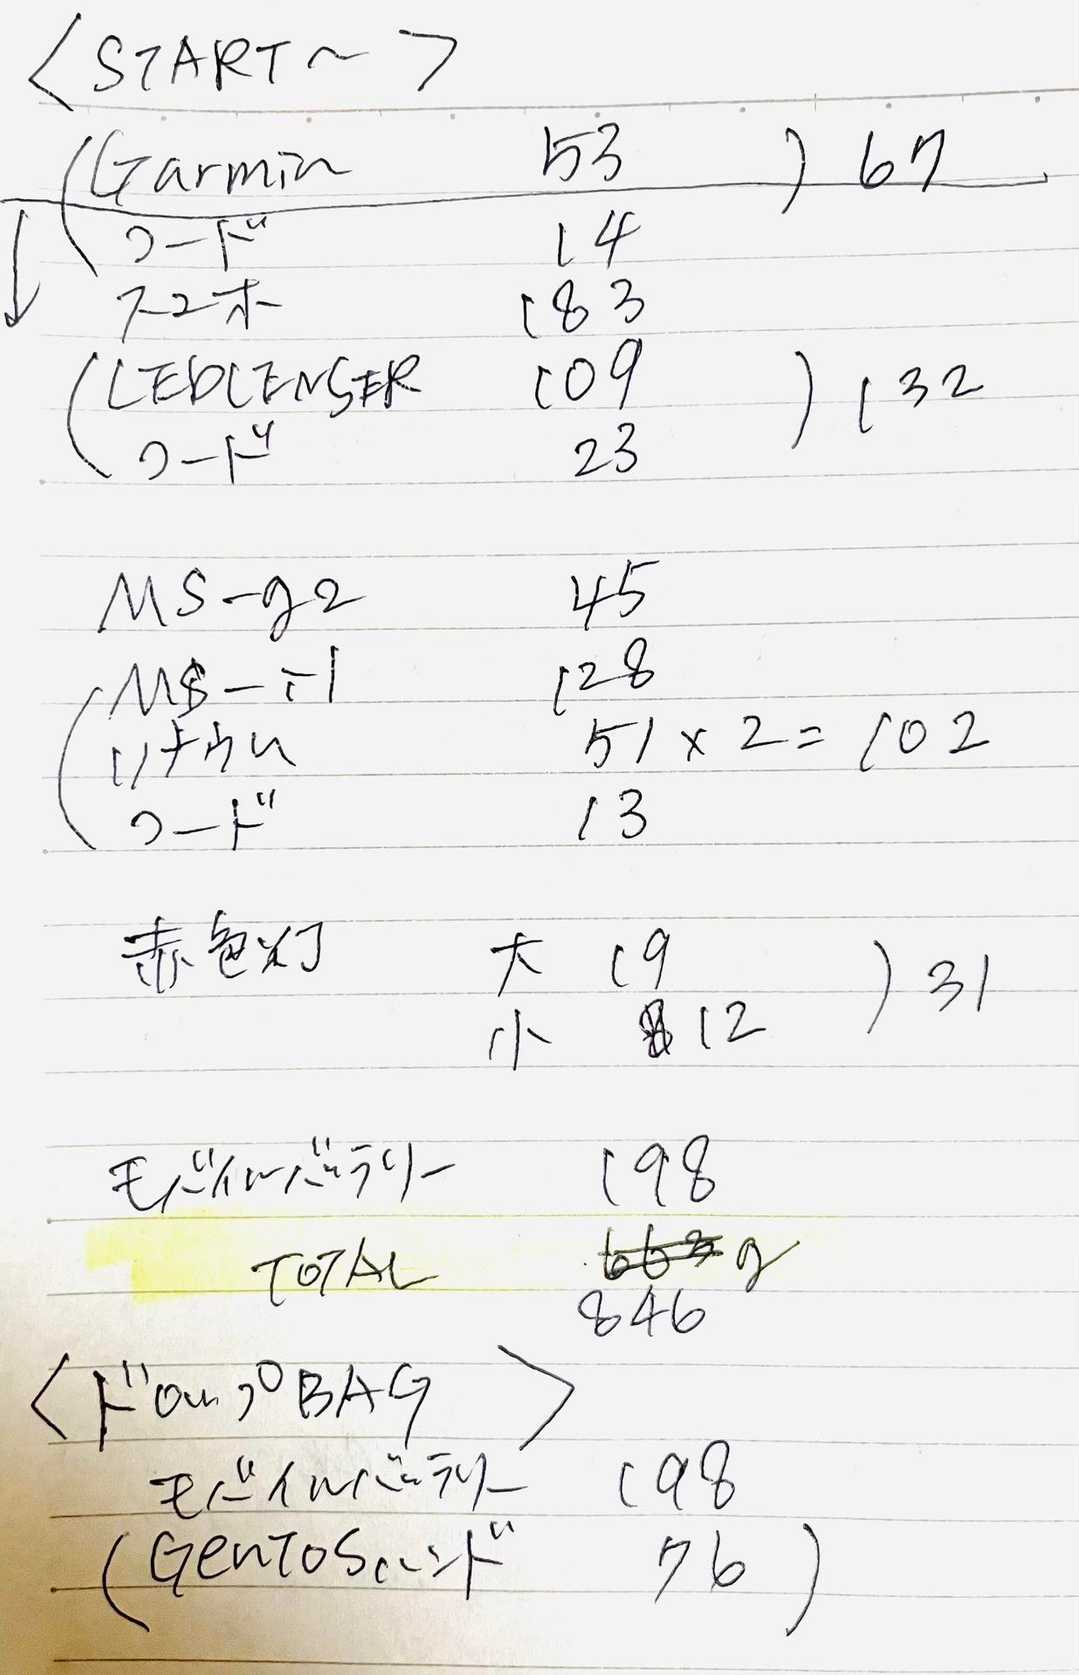 <START~>
(Garmin 53 ) 67
コード 14
スマホ 183
(LEDLENSER 109 ) 132
コード 23
MS-g2 45
(MS-i1 128
リチウム 51×2=102
コード 13
赤色灯 大 19 ) 31
小 12
モバイルバッテリー 198
TOTAL 663 g
846
<ドロップBAG>
モバイルバッテリー 198
(GENTOSハンド 76 )